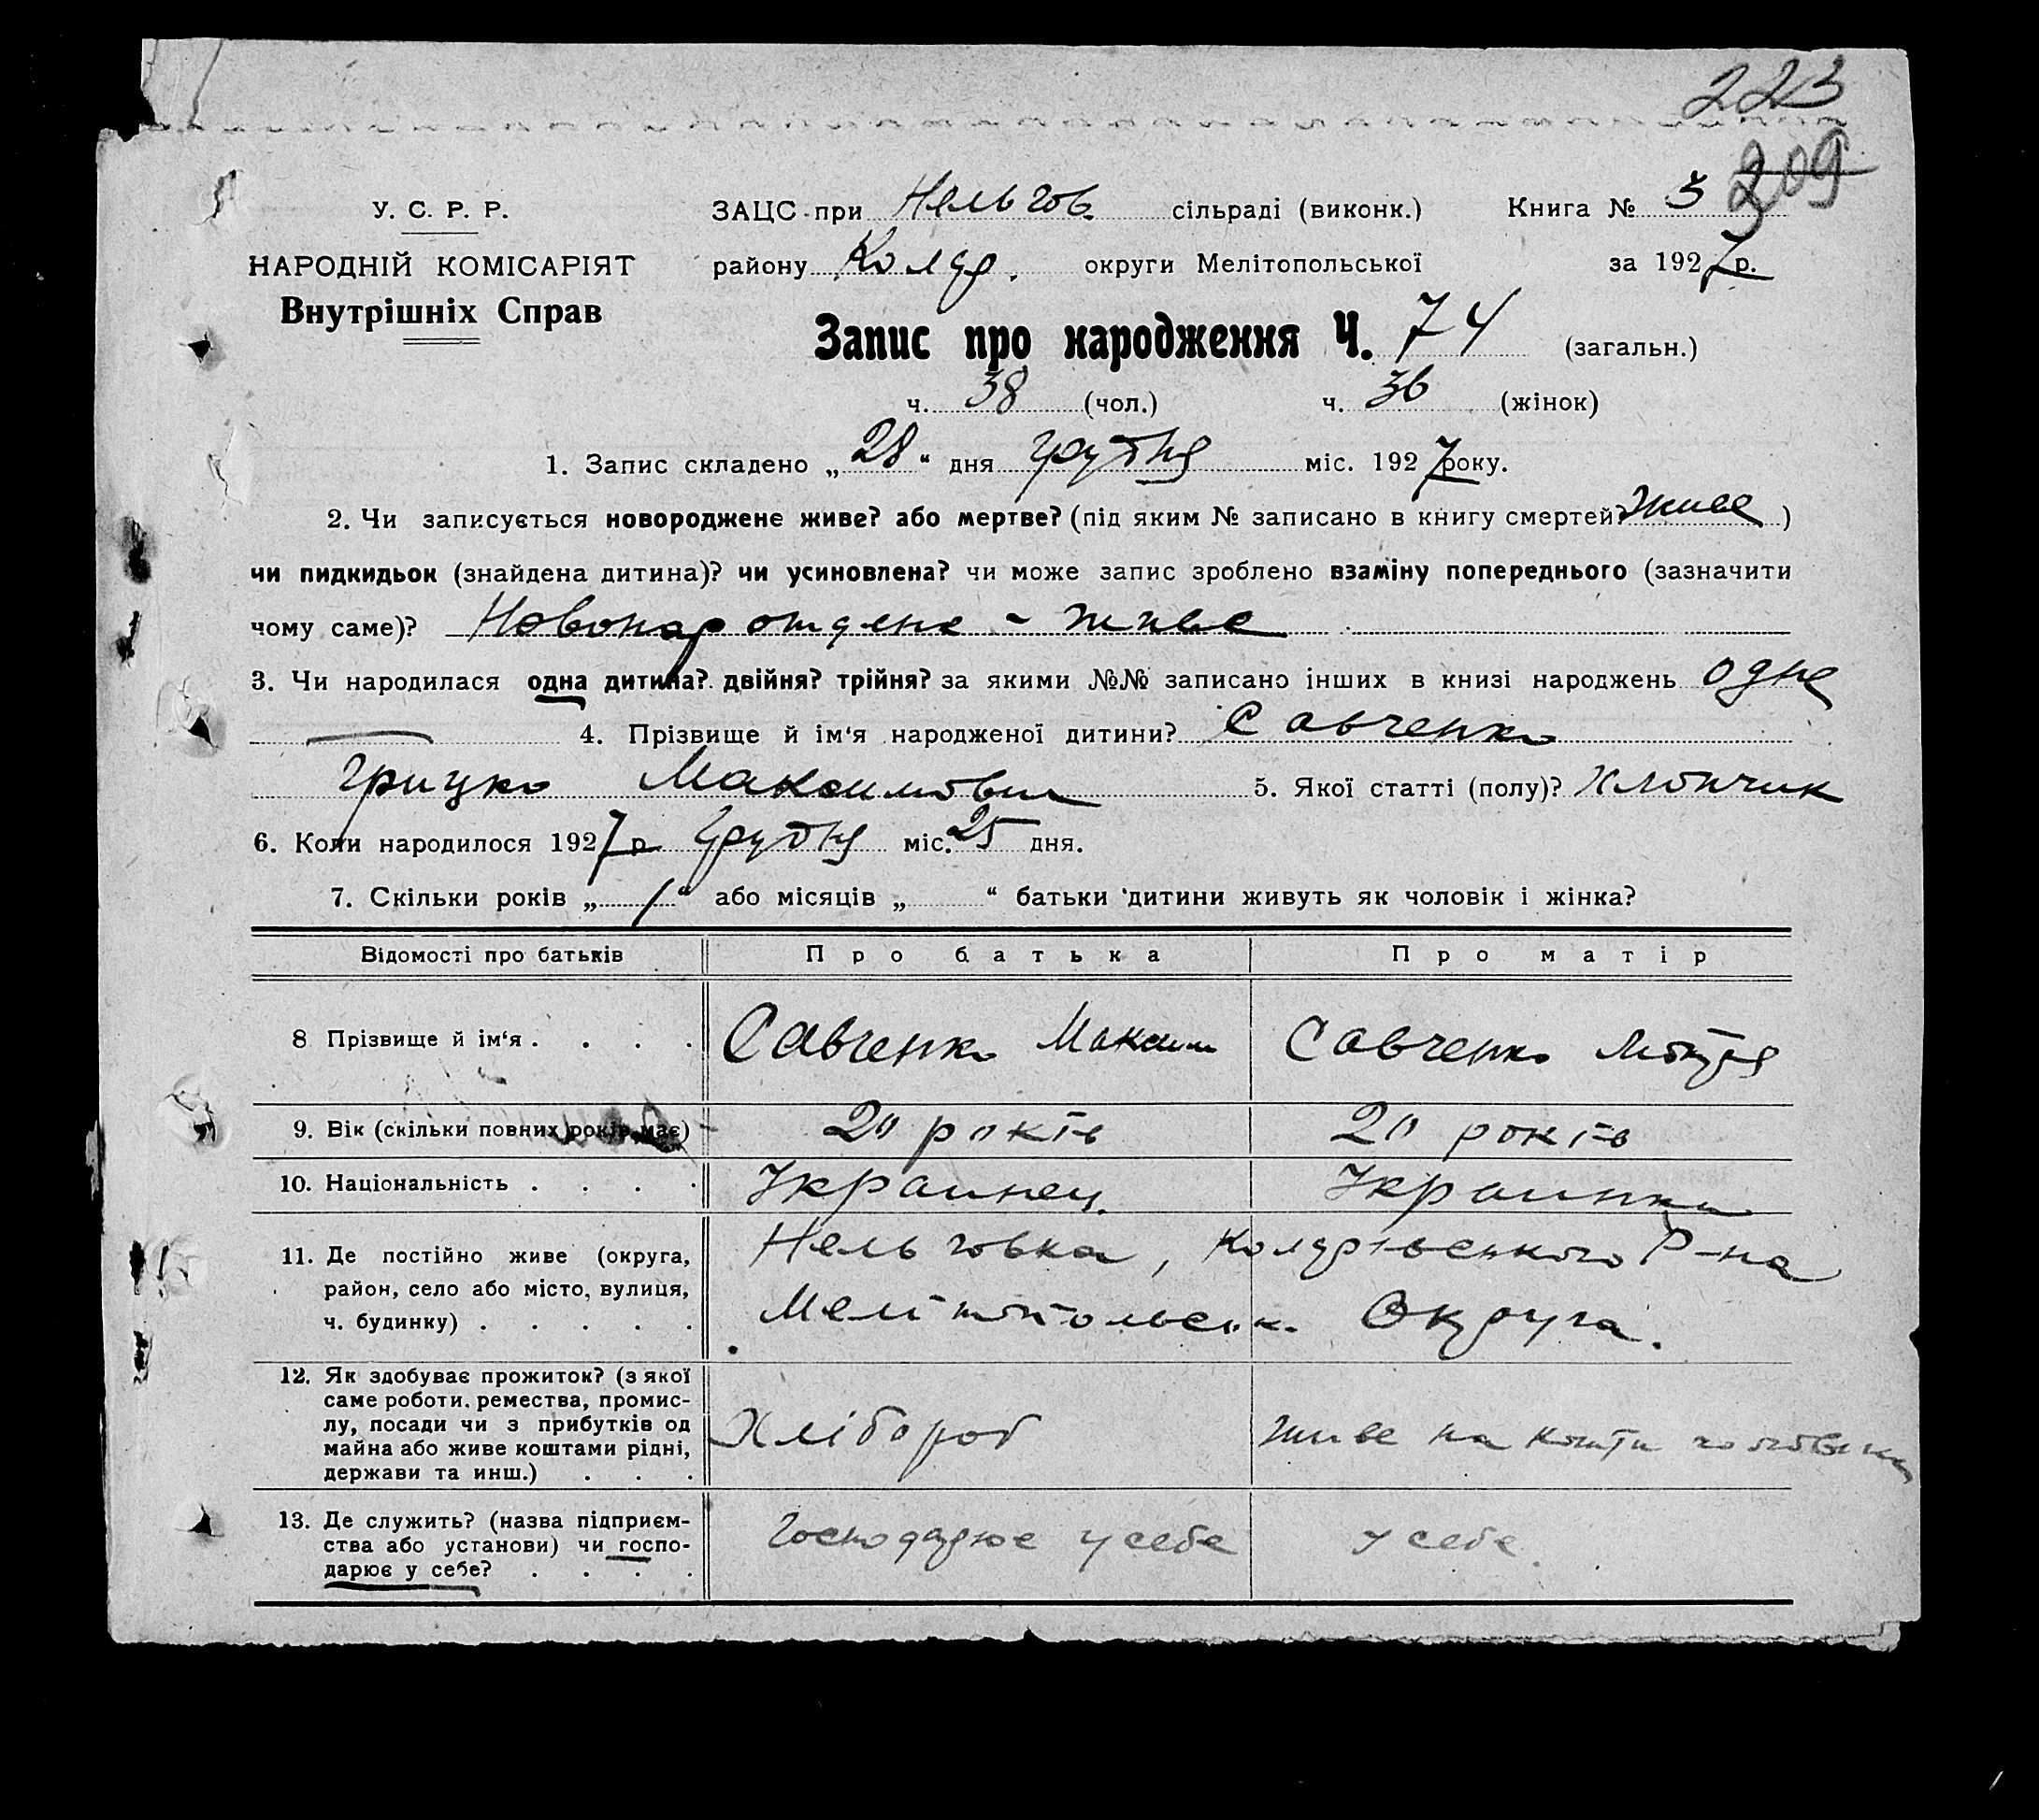 223
209
У. С. Р. Р.
НАРОДНІЙ КОМІСАРІЯТ
Внутрішніх Справ
ЗАЦС при Нельгов. сільраді (виконк.) Книга № 3
району Колар. округи Мелітопольської за 1927 р.
Запис про народження Ч. 74 (загальн.)
ч. 38 (чол.) ч. 36 (жінок)
1. Запис складено „28“ дня грудня міс. 1927 року.
2. Чи записується новороджене живе? або мертве? (під яким № записано в книгу смертей? живе)
чи пидкидьок (знайдена дитина)? чи усиновлена? чи може запис зроблено взаміну попереднього (зазначити
чому саме)? Новонарождене - живе
3. Чи народилася одна дитина? двійня? трійня? за якими №№ записано інших в книзі народжень одне
4. Прізвище й ім‘я народженої дитини? Савченко
Грицко Максимович 5. Якої статті (полу)? Хлопчик
6. Коли народилося 1927 р. Грудня міс. 25 дня.
7. Скільки років „1“ або місяців „ “ батьки дитини живуть як чоловік і жінка?
Відомості про батьків Про батька Про матір
8 Прізвище й ім‘я . . . . Савченко Максим Савченко
9. Вік (скільки повних років має) 20 років 20 років
10. Національність . . . . Украинец. Украинка
11. Де постійно живе (округа,
район, село або місто, вулиця,
ч. будинку) . . . . .
Нельговка, Коларівського Р-на
Мелітопольськ. Округа.
12. Як здобуває прожиток? (з якої
саме роботи. ремества, промис-
лу, посади чи з прибутків од
майна або живе коштами рідні,
держави та инш.) . . .
Хлібороб Живе на кошти чоловіка
13. Де служить? (назва підприєм-
ства або установи) чи госпо-
дарює у себе? . . . .
Господарює у себе у себе.